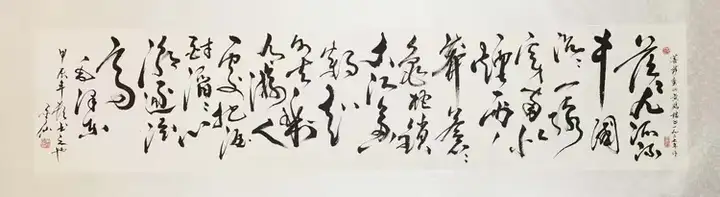 菩萨蛮 黄鹤楼 一九二七年
茫茫九派流
中国
沉沉一线
穿南北
烟雨
莽苍苍
龟蛇锁
大江黄
鹤知
何去剩
有游人
处把酒
酹滔滔心
潮逐浪
高
毛泽东
甲辰年 书